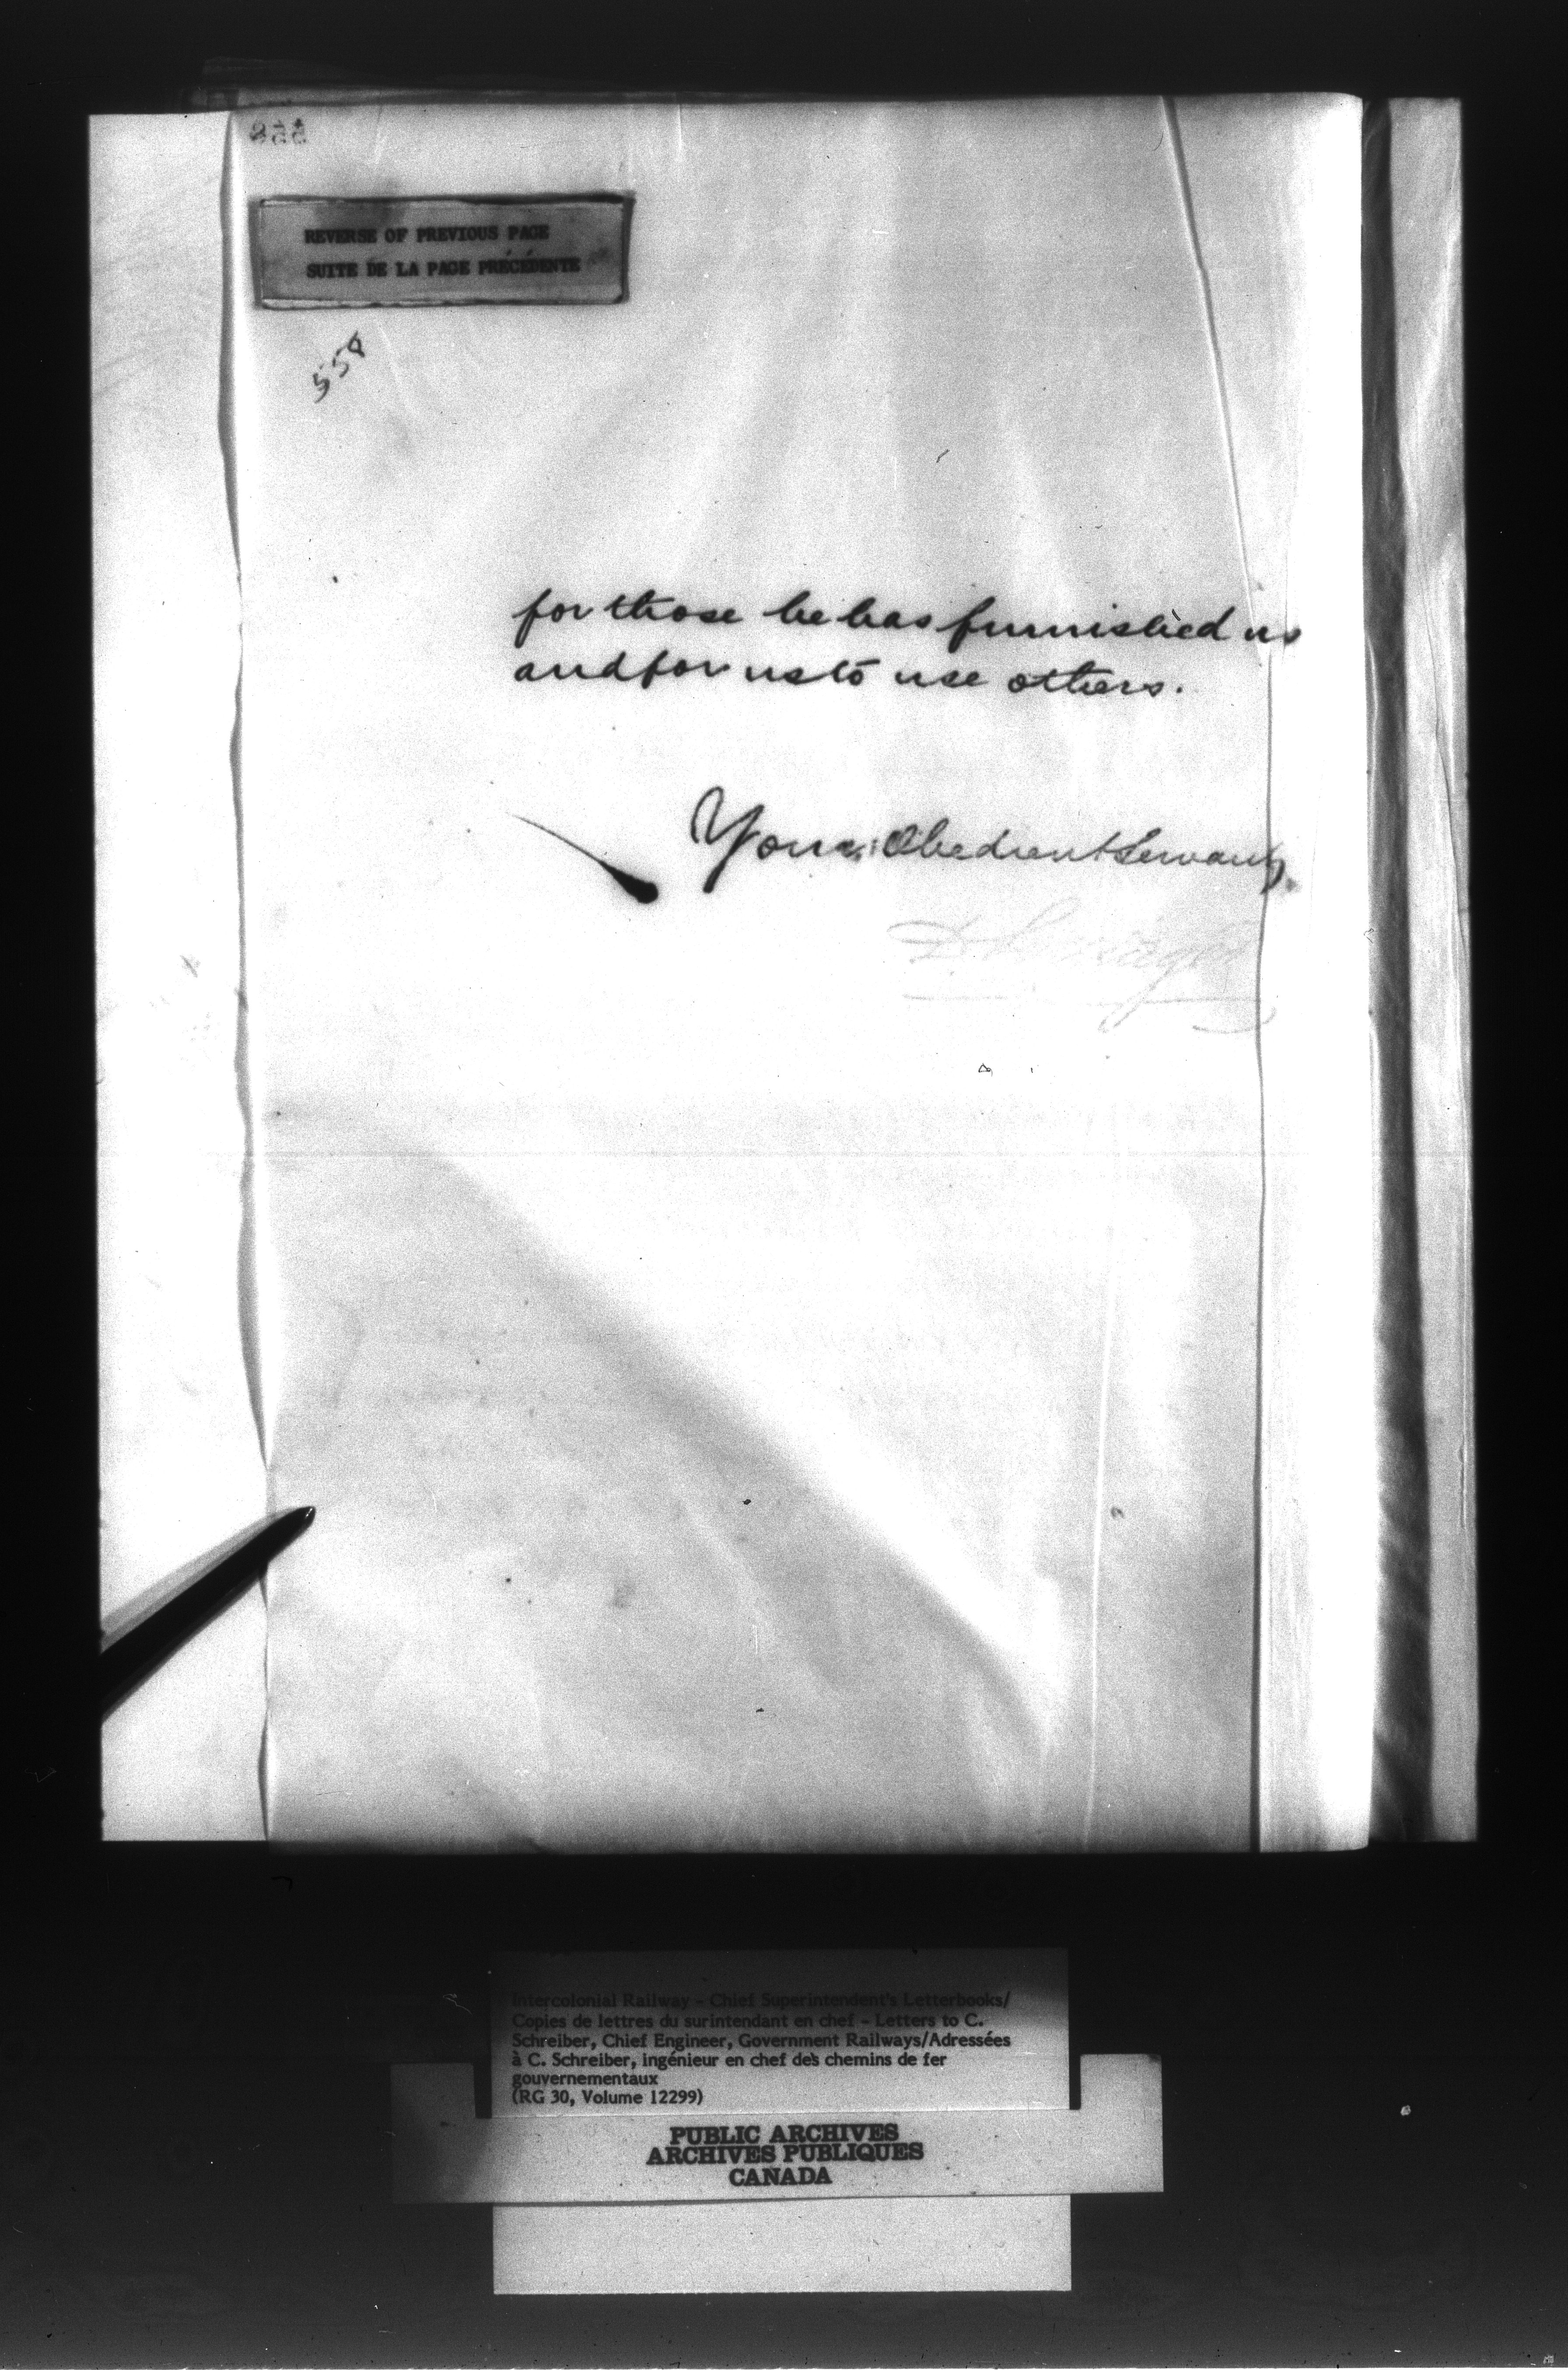 558
REVERSE OF PREVIOUS PAGE
SUITE DE LA PAGE PRÉCÉDENTE
558
for those he has furnished us
and for us to use others.
Your Obedient Servant,
D.
Intercolonial Railway - Chief Superintendent's Letterbooks/
Copies de lettres du surintendant en chef - Letters to C.
Schreiber, Chief Engineer, Government Railways/Adressées
à C. Schreiber, ingénieur en chef des chemins de fer
gouvernementaux
(RG 30, Volume 12299)
PUBLIC ARCHIVES
ARCHIVES PUBLIQUES
CANADA